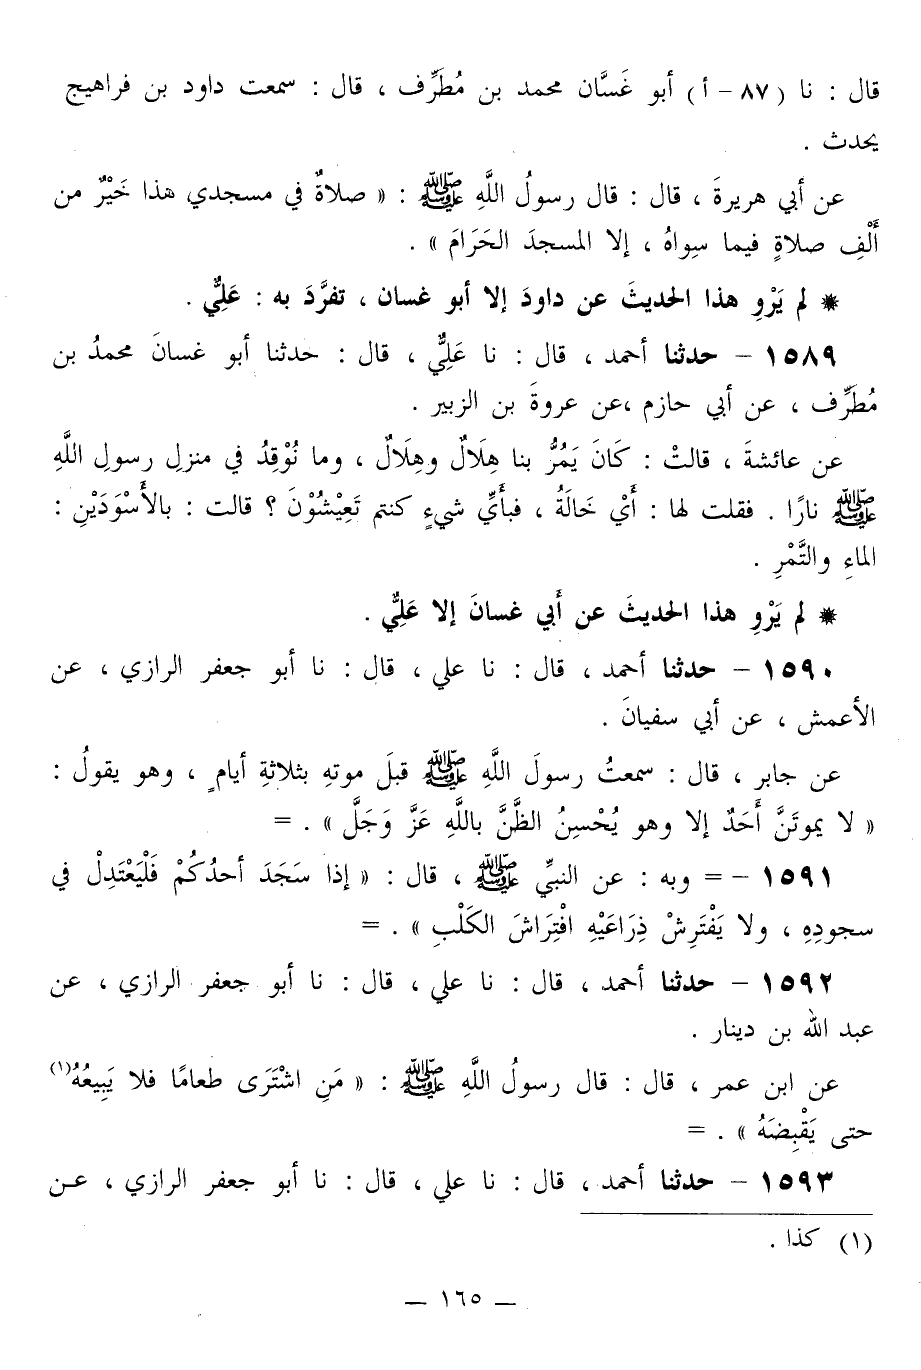 قال : نا (٨٧ - أ) أبو غَسَّان محمد بن مُطَرِّف ، قال : سمعت داود بن فراهيج
يحدث .
عن أبي هريرةَ ، قال : قال رسولُ اللَّهِ ﷺ : « صلاةٌ في مسجدي هذا خَيْرٌ من
أَلْفِ صلاةٍ فيما سِواهُ ، إلا المسجدَ الحَرَامَ » .
* لم يَرْوِ هذا الحديثَ عن داودَ إلا أبو غسان ، تفرَّدَ به : عَلِيٌّ .
١٥٨٩ - حدثنا أحمد ، قال : نا عَلِيٌّ ، قال : حدثنا أبو غسانَ محمدُ بن
مُطَرِّف ، عن أبي حازم ،عن عروةَ بن الزبير .
عن عائشةَ ، قالتْ : كَانَ يَمُرُّ بنا هِلَالٌ وهِلَالٌ ، وما نُوْقِدُ في منزلِ رسولِ اللَّهِ
ﷺ نارًا . فقلت لها : أَيْ خَالَةُ ، فبأَيِّ شيءٍ كنتم تَعِيْشُوْنَ ؟ قالت : بالأَسْوَدَيْنِ :
الماءِ والتَّمْرِ .
* لم يَرْوِ هذا الحديثَ عن أَبي غسانَ إلا عَلِيٌّ .
١٥٩٠ - حدثنا أحمد ، قال : نا علي ، قال : نا أبو جعفر الرازي ، عن
الأعمش ، عن أبي سفيانَ .
عن جابر ، قال : سمعتُ رسولَ اللَّهِ ﷺ قبلَ موتهِ بثلاثةِ أيامٍ ، وهو يقولُ :
« لا يموتَنَّ أَحَدٌ إلا وهو يُحْسِنُ الظَّنَّ باللَّهِ عَزَّ وَجَلَّ » . =
١٥٩١ - = وبه : عن النبيِّ ﷺ ، قال : « إذا سَجَدَ أحدُكُمْ فَلْيَعْتَدِلْ في
سجودِهِ ، ولا يَفْتَرِشْ ذِرَاعَيْهِ افْتِرَاشَ الكَلْبِ » . =
١٥٩٢ - حدثنا أحمد ، قال : نا علي ، قال : نا أبو جعفر الرازي ، عن
عبد الله بن دينار .
عن ابن عمر ، قال : قال رسولُ اللَّهِ ﷺ : « مَنِ اشْتَرَى طعامًا فلا يَبِيعُهُ(١)
حتى يَقْبِضَهُ » . =
١٥٩٣ - حدثنا أحمد ، قال : نا علي ، قال : نا أبو جعفر الرازي ، عـن
(١) كذا .
— ١٦٥ —